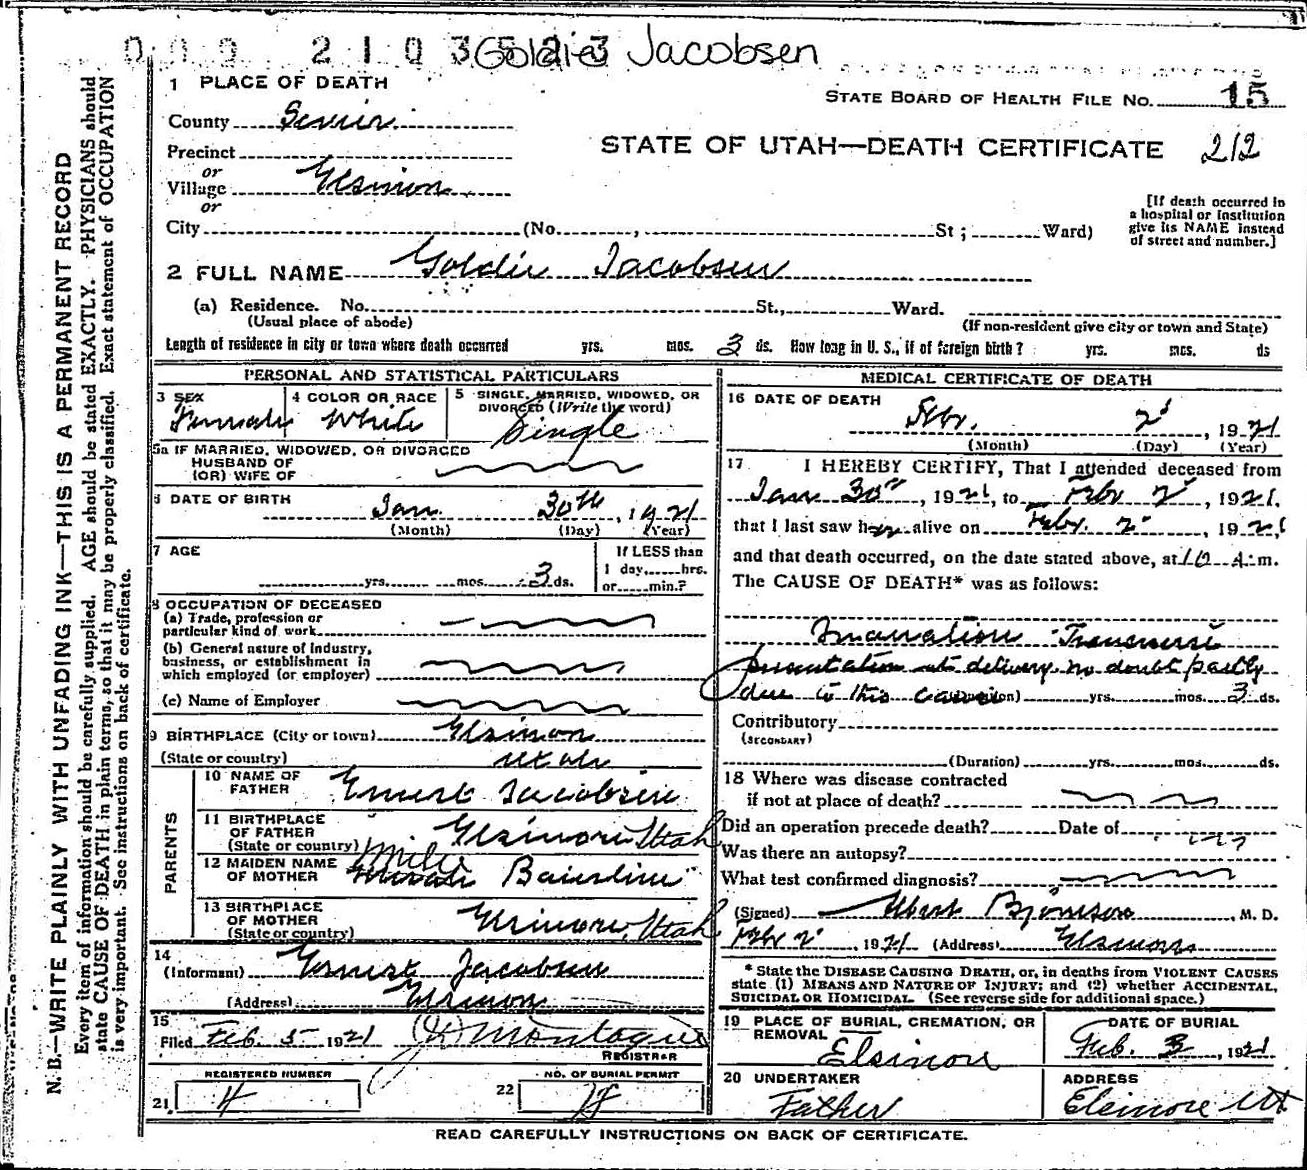 Goldie Jacobsen
1 PLACE OF DEATH
STATE BOARD OF HEALTH FILE NO. 15
County Sevier
STATE OF UTAH—DEATH CERTIFICATE 212
Precinct
or
Village Elsinore
or
[If death occurred in a hospital or Institution give its NAME instead of street and number.]
City (No. , St ; Ward)
2 FULL NAME Goldie Jacobsen
(a) Residence. No. St., Ward.
(Usual place of abode) (If non-resident give city or town and State)
Length of residence in city or town where death occurred yrs. mos. 3 ds. How long in U. S., if of foreign birth? yrs. mos. ds
PERSONAL AND STATISTICAL PARTICULARS
3 SEX Female
4 COLOR OR RACE White
5 SINGLE, MARRIED, WIDOWED, OR DIVORCED (Write the word) Single
5a IF MARRIED, WIDOWED, OR DIVORCED
HUSBAND OF
(OR) WIFE OF
6 DATE OF BIRTH
Jan. 30th, 1921
(Month) (Day) (Year)
7 AGE
yrs. mos. 3 ds.
If LESS than
1 day, hrs.
or min.?
8 OCCUPATION OF DECEASED
(a) Trade, profession or
particular kind of work
(b) General nature of Industry,
business, or establishment in
which employed (or employer)
(c) Name of Employer
9 BIRTHPLACE (City or town) Elsinore
(State or country) Utah
PARENTS
10 NAME OF FATHER Ernest Jacobsen
11 BIRTHPLACE OF FATHER (State or country) Elsinore Utah
12 MAIDEN NAME OF MOTHER
13 BIRTHPLACE OF MOTHER (State or country) Elsinore, Utah
14
(Informant) Ernest Jacobsen
(Address) Elsinore
15
Filed Feb. 5 1921 Montague
REGISTRAR
REGISTERED NUMBER
21 4
NO. OF BURIAL PERMIT
22 18
MEDICAL CERTIFICATE OF DEATH
16 DATE OF DEATH
Feb. 2, 1921
(Month) (Day) (Year)
17 I HEREBY CERTIFY, That I attended deceased from
Jan 30", 1921, to Feb 2, 1921,
that I last saw her alive on Feby. 2, 1921
and that death occurred, on the date stated above, at 10 A. m.
The CAUSE OF DEATH* was as follows:
Inanation Transverse
presentation at delivery no doubt partly
due to this cause (Duration) yrs. mos. 3 ds.
Contributory
(SECONDARY)
(Duration) yrs. mos. ds.
18 Where was disease contracted
if not at place of death?
Did an operation precede death? Date of
Was there an autopsy?
What test confirmed diagnosis?
(Signed) M. D.
Feb 2, 1921 (Address) Elsinore
* State the DISEASE CAUSING DEATH, or, in deaths from VIOLENT CAUSES
state (1) MEANS AND NATURE OF INJURY; and (2) whether ACCIDENTAL,
SUICIDAL OR HOMICIDAL. (See reverse side for additional space.)
19 PLACE OF BURIAL, CREMATION, OR REMOVAL
Elsinore
DATE OF BURIAL
Feb. 3, 1921
20 UNDERTAKER
Father
ADDRESS
Elsinore Ut
READ CAREFULLY INSTRUCTIONS ON BACK OF CERTIFICATE.
N. B.—WRITE PLAINLY WITH UNFADING INK—THIS IS A PERMANENT RECORD
Every item of information should be carefully supplied. AGE should be stated EXACTLY. PHYSICIANS should
state CAUSE OF DEATH in plain terms, so that it may be properly classified. Exact statement of OCCUPATION
is very important. See instructions on back of certificate.